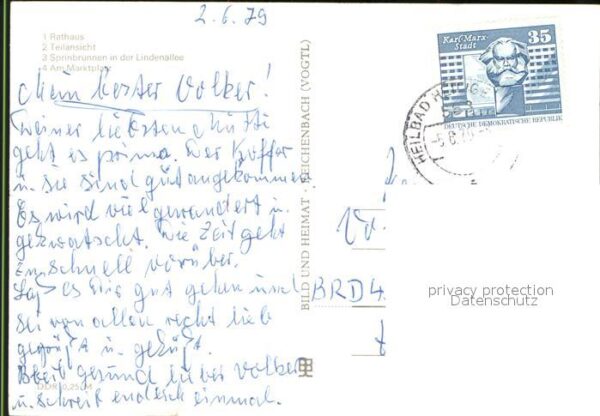 2.6.79
1 Rathaus
2 Teilansicht
3 Sprinbrunnen in der Lindenallee
4 Am Marktplatz
Mein bester Volker!
Deiner liebsten Mutti
geht es prima. Der Koffer
u. sie sind gut angekommen
Es wird viel gewandert u.
gequatscht. Die Zeit geht
zu schnell vorüber.
Laß es Dir gut gehen und
sei von allen recht lieb
gegrüßt u. geküßt.
Bleib gesund lieber Volker
u. schreib endlich einmal.
DDR 0,25 M
BILD UND HEIMAT · REICHENBACH (VOGTL)
Karl-Marx-
Stadt
35
DEUTSCHE DEMOKRATISCHE REPUBLIK
HEILBAD HEILIGE
BRD 4
privacy protection
Datenschutz